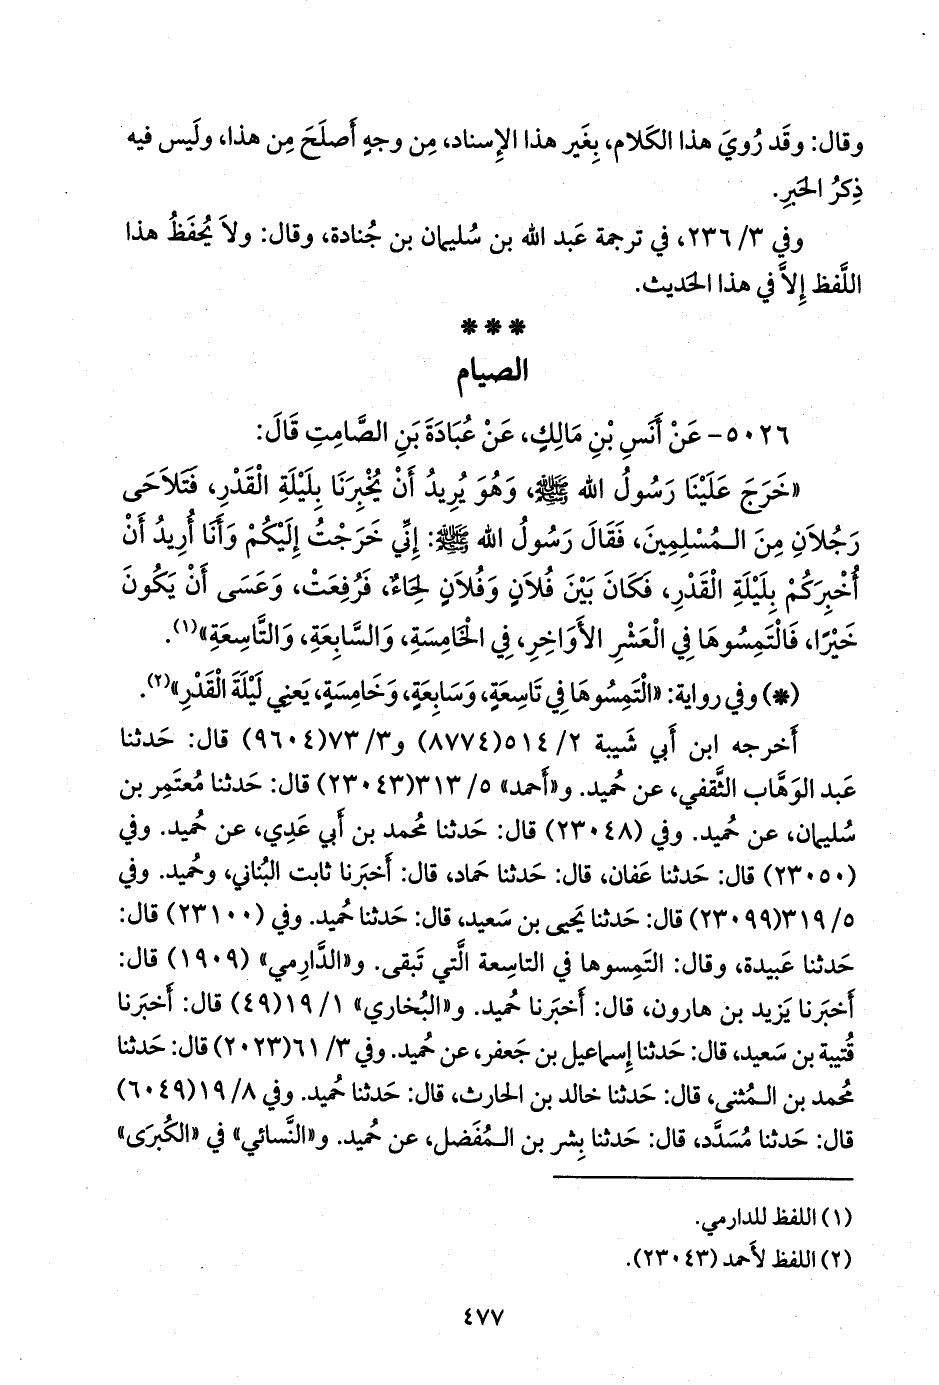 وقال: وقَد رُويَ هذا الكَلام، بِغَير هذا الإِسناد، مِن وجهٍ أَصلَحَ مِن هذا، ولَيس فيه
ذِكرُ الحَبرِ.
وفي ٣/ ٢٣٦، في ترجمة عَبد الله بن سُليمان بن جُنادة، وقال: ولاَ يُحفَظُ هذا
اللَّفظ إِلاَّ في هذا الحَديث.
***
الصيام
٥٠٢٦- عَنْ أَنَسِ بْنِ مَالِكٍ، عَنْ عُبَادَةَ بَنِ الصَّامِتِ قَالَ:
«خَرَجَ عَلَيْنَا رَسُولُ الله ﷺ، وَهُوَ يُرِيدُ أَنْ يُخْبِرَنَا بِلَيْلَةِ الْقَدْرِ، فَتَلاَحَى
رَجُلاَنِ مِنَ الـمُسْلِمِينَ، فَقَالَ رَسُولُ الله ﷺ: إِنِّي خَرَجْتُ إِلَيْكُمْ وَأَنَا أُرِيدُ أَنْ
أُخْبِرَكُمْ بِلَيْلَةِ الْقَدْرِ، فَكَانَ بَيْنَ فُلاَنٍ وَفُلاَنٍ لِحَاءٌ، فَرُفِعَتْ، وَعَسَى أَنْ يَكُونَ
خَيْرًا، فَالْتَمِسُوهَا فِي الْعَشْرِ الأَوَاخِرِ، فِي الْخَامِسَةِ، وَالسَّابِعَةِ، وَالتَّاسِعَةِ»(١).
(*) وفي رواية: «الْتَمِسُوهَا فِي تَاسِعَةٍ، وَسَابِعَةٍ، وَخَامِسَةٍ، يَعنِي لَيْلَةَ الْقَدْرِ»(٢).
أَخرجه ابن أَبي شَيبة ٢/ ٥١٤(٨٧٧٤) و٣/ ٧٣(٩٦٠٤) قال: حَدثنا
عَبد الوَهَّاب الثَّقفي، عن حُميد. و«أَحمد» ٥/ ٣١٣(٢٣٠٤٣) قال: حَدثنا مُعتَمِر بن
سُليمان، عن حُميد. وفي (٢٣٠٤٨) قال: حَدثنا مُحمد بن أَبي عَدِي، عن حُميد. وفي
(٢٣٠٥٠) قال: حَدثنا عَفان، قال: حَدثنا حَماد، قال: أَخبَرنا ثابت البُناني، وحُميد. وفي
٥/ ٣١٩(٢٣٠٩٩) قال: حَدثنا يَحيى بن سَعيد، قال: حَدثنا حُميد. وفي (٢٣١٠٠) قال:
حَدثنا عَبيدة، وقال: التَمِسوها في التاسعة الَّتي تَبقى. و«الدَّارِمي» (١٩٠٩) قال:
أَخبَرنا يَزيد بن هارون، قال: أَخبَرنا حُميد. و«البُخاري» ١/ ١٩(٤٩) قال: أَخبَرنا
قُتيبة بن سَعيد، قال: حَدثنا إِسماعيل بن جَعفر، عن حُميد. وفي ٣/ ٦١(٢٠٢٣) قال: حَدثنا
مُحمد بن الـمُثنى، قال: حَدثنا خالد بن الحارث، قال: حَدثنا حُميد. وفي ٨/ ١٩(٦٠٤٩)
قال: حَدثنا مُسَدَّد، قال: حَدثنا بِشر بن الـمُفَضل، عن حُميد. و«النَّسائي» في «الكُبرَى»
(١) اللفظ للدارمي.
(٢) اللفظ لأَحمد (٢٣٠٤٣).
٤٧٧